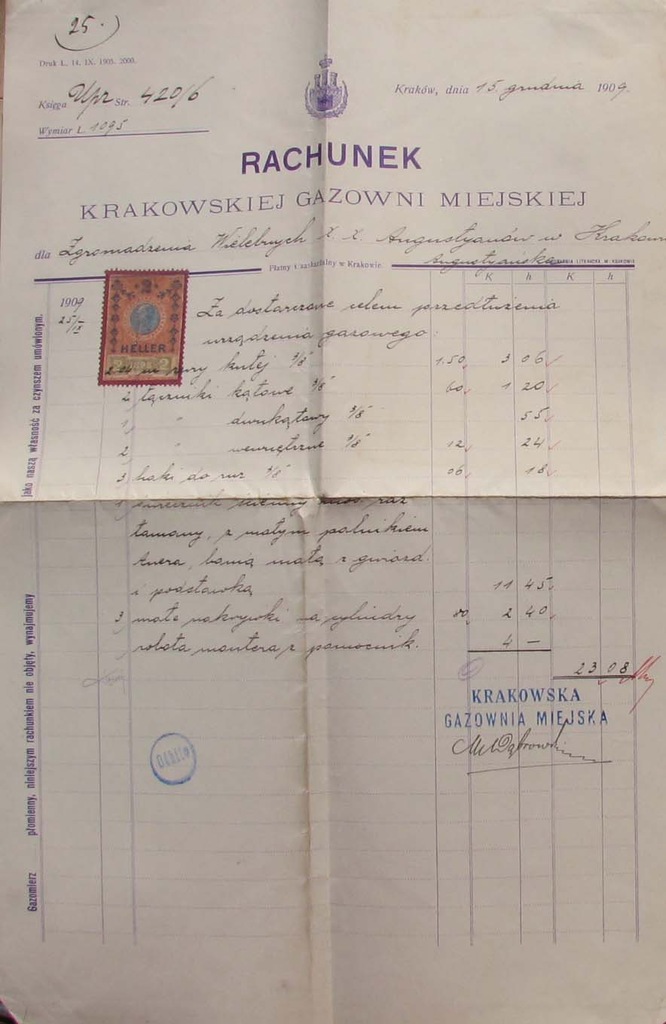 25.
Druk L. 14. IX. 1905. 2000.
Księga Upr Str. 420/6
Kraków, dnia 15. grudnia 1909.
Wymiar L. 1095
RACHUNEK
KRAKOWSKIEJ GAZOWNI MIEJSKIEJ
dla Zgromadzenia Wielebnych X. X. Augustyanów w Krakowie
Płatny i zaskarżalny w Krakowie. Augustyańska
K h K h
1909 Za dostarczone celem przedłużenia
25/IX urządzenia gazowego:
2
HELLER
2
rury kutej 3/8" 1.50 3 06
2 łączniki kątowe 3/8" 60 1 20
1 " dwukątowy 3/8" 55
2 " wewnętrzne 3/8" 12 24
3 haki do rur 3/8" 06 18
1 ścienny raz
łamany, z małym palnikiem
Auera, banią małą z gwiazd.
i podstawką 11 45
3 małe nakrywki na cylindry 80 2 40
robota montera z pomocnik. 4 —
23 08
KRAKOWSKA
GAZOWNIA MIEJSKA
M Dąbrowski
Gazomierz płomienny, niniejszym rachunkiem nie objęty, wynajmujemy jako naszą własność za czynszem umówionym.